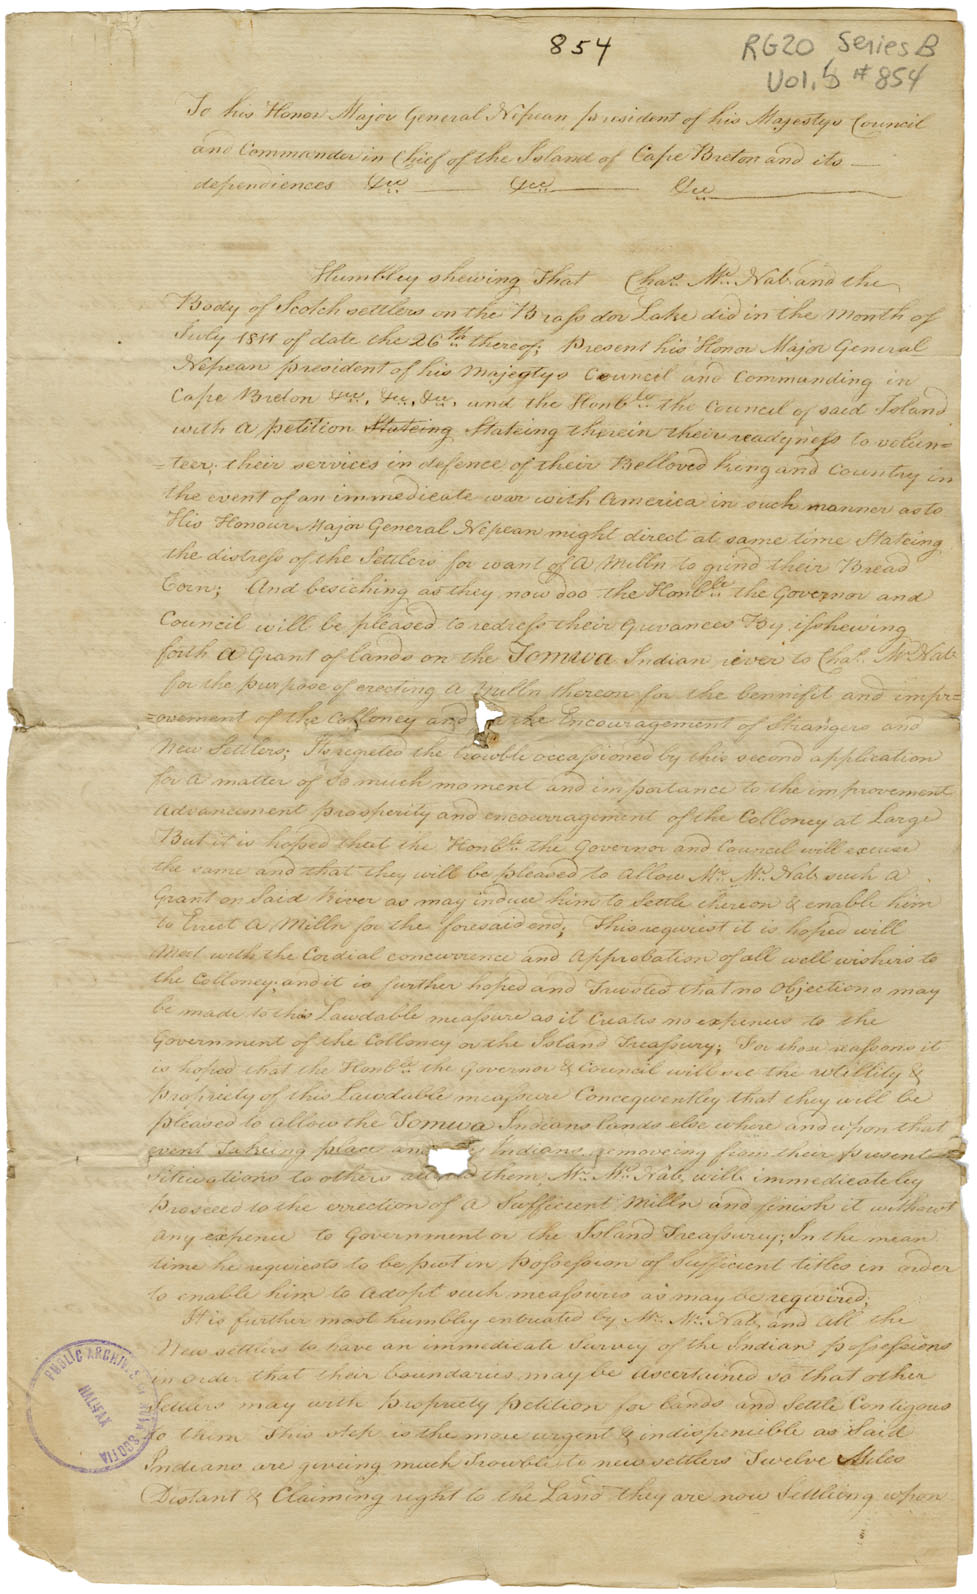 854
RG20 Series B
Vol. 5 #854
To his Honor Major General Nepean president of his Majestys Council
and Commander in Chief of the Island of Cape Breton and its
dependiences &cc &cc &cc
Humbley shewing That Chas. Mc. Nab and the
Body of Scotch settlers on the Brass dor Lake did in the Month of
July 1811 of date the 26th thereof; Present his Honor Major General
Nepean president of his Majestys Council and Commanding in
Cape Breton &cc, &cc, &cc, and the Honble the Council of said Island
with a petition Stateing Stateing therein their readyness to volun=
=teer; their services in defence of their Belloved king and Country in
the event of an immedicate war with America in such manner as to
His Honour Major General Nepean might direct at same time Stateing
the distress of the Settlers for want of a Milln to grind their Bread
Corn; And besiching as they now doo the Honble the Governor and
Council will be pleased to redress their Grivances By isshewing
forth a Grant of lands on the Tomwa Indian river to Chas. Mc. Nab
for the purpose of erecting a Milln thereon for the bennifit and impr=
=ovement of the Colloney and the Encouragement of Strangers and
New Settlers; Its regreted the trowble occassioned by this second application
for a matter of so much moment and importance to the improvement
advancement prosperity and encourragement of the Colloney at Large
But it is hoped that the Honble the Governor and Council will excuse
the same and that they will be pleased to allow Mr. Mc. Nab such a
Grant on Said River as may induce him to Settle thereon & enable him
to Erect a Milln for the foresaid end; This requiest it is hoped will
Meet with the Cordial concurrence and approbation of all well wishers to
the Colloney; and it is further hoped and Trusted that no objections may
be made to this Lawdable meassure as it Creates no expences to the
Government of the Colloney or the Island Treassury; For those reassons it
is hoped that the Honble the Governor & Council will see the utillity &
propriety of this Lawdable meassure Conceqwentley that they will be
pleased to allow the Tomwa Indians lands else where and upon that
event Takeing place and Indians removeing from their present
Sittuations to others them Mr. Mc. Nab, will immedicateley
Prosceed to the errection of a Sufficient Milln and finish it without
any expence to Government or the Island Treassury; In the mean
time he requiests to be put in possession of Sufficient titles in order
to enable him to adopt such meassures as may be reqwired;
It is further most humbley entreated by Mr. Mc. Nab, and all the
New settlers to have an immedicate Survey of the Indian possessions
in order that their boundaries may be ascertained so that other
Settlers may with propriety petition for lands and Settle Contigous
to them This step is the more urgent & indispencible as Said
Indians are giveing much Trouble to new settlers Twelve Miles
Distant & Claiming right to the Land they are now Settleing upon
PUBLIC ARCHIVES OF NOVA SCOTIA
HALIFAX